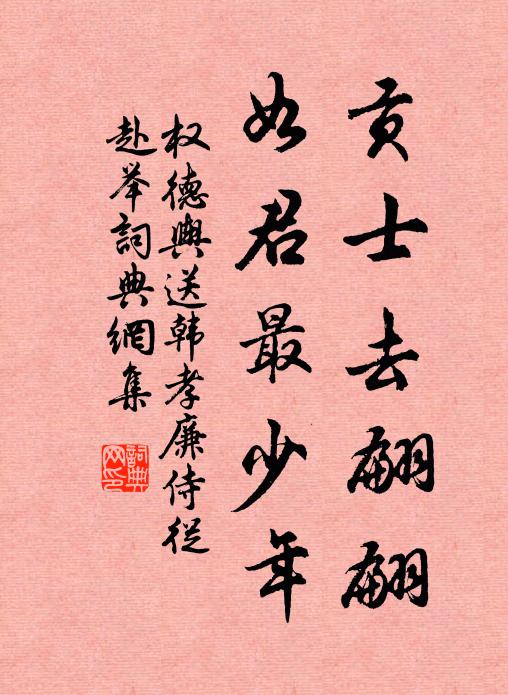 贡士去翩翩
如君最少年
权德舆送韩孝廉侍从
赴举词典網集
詞典网印